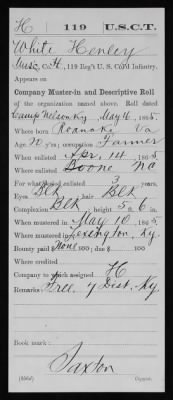 H | 119 | U.S.C.T.
White Henley
Co. H, 119 Reg't U. S. Col'd Infantry.
Appears on
Company Muster-in and Descriptive Roll
of the organization named above. Roll dated
Camp Nelson Ky May 16, 1865.
Where born Roanoke Va
Age 20 y'rs; occupation Farmer
When enlisted Apr. 14, 1865.
Where enlisted Boone
For what period enlisted 3 years.
Eyes Blk ; hair Blk
Complexion Blk ; height 5 ft. 6 in.
When mustered in May 10, 1865
Where mustered in Lexington, Ky.
Bounty paid $ None 100; due $ 100
Where credited
Company to which assigned H
Remarks: Free 7 Dist. Ky.
Book mark:
Saxton
Copyist.